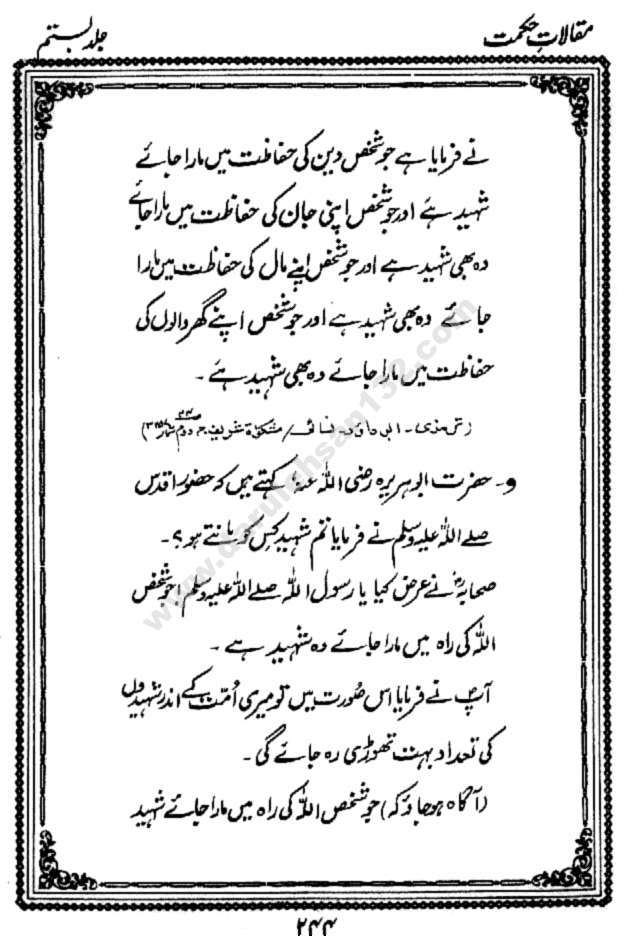 مقالاتِ حکمت
جلد بستم
نے فرمایا ہے جو شخص دین کی حفاظت میں مارا جائے
شہید ہے اور جو شخص اپنی جان کی حفاظت میں مارا جائے
وہ بھی شہید ہے اور جو شخص اپنے مال کی حفاظت میں مارا
جائے وہ بھی شہید ہے اور جو شخص اپنے گھر والوں کی
حفاظت میں مارا جائے وہ بھی شہید ہے ۔
(ترمذی - ابی داؤد - نسائی / مشکوٰۃ شریف ج دوم
و- حضرت ابوہریرہ رضی اللہ عنہ کہتے ہیں کہ حضور اقدس
صلے اللہ علیہ وسلم نے فرمایا تم شہید کس کو مانتے ہو ؟ -
صحابہؓ نے عرض کیا یا رسول اللہ صلے اللہ علیہ وسلم! جو شخص
اللہ کی راہ میں مارا جائے وہ شہید ہے ۔
آپؐ نے فرمایا اس صورت میں تو میری اُمت کے اندر شہیدوں
کی تعداد بہت تھوڑی رہ جائے گی ۔
(آگاہ ہو جاؤ کہ) جو شخص اللہ کی راہ میں مارا جائے شہید
۲۴۴
www.darulehsan132.com